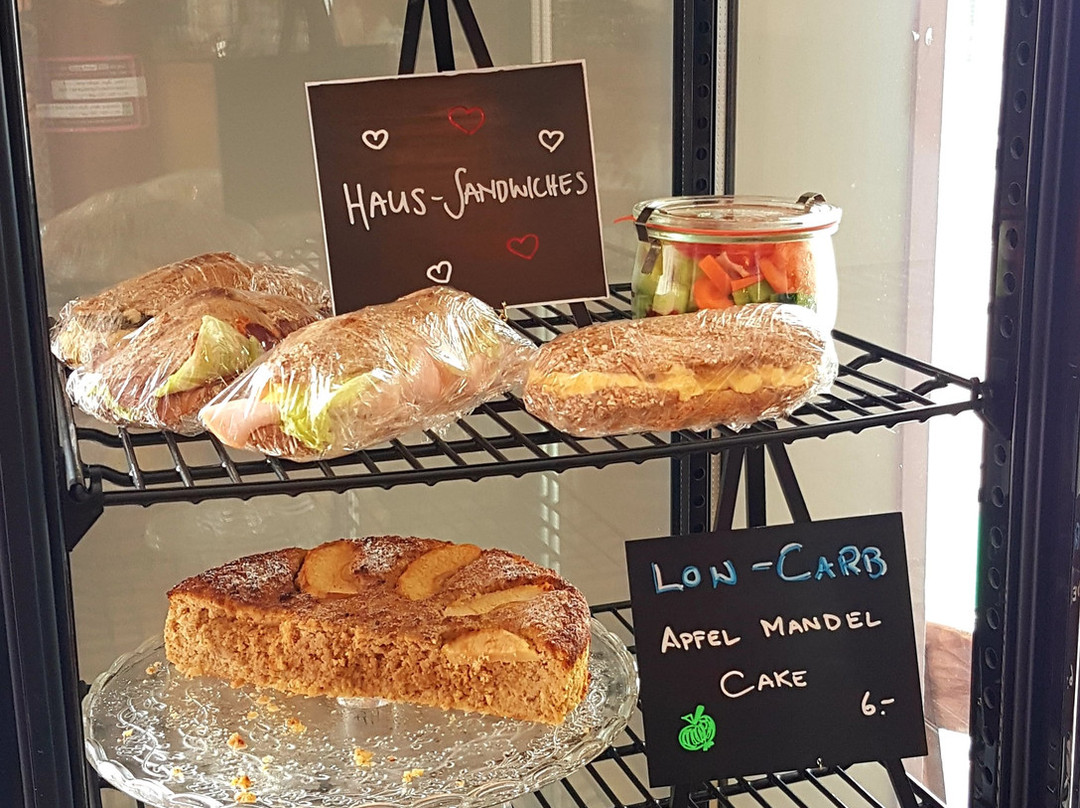 HAUS-SANDWICHES
LOW-CARB
APFEL MANDEL
CAKE
6.-